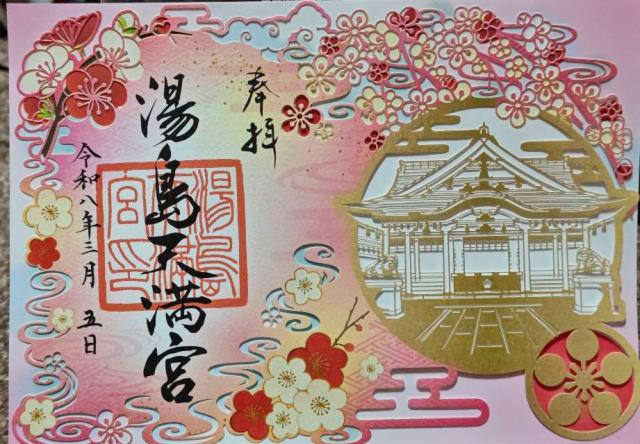 奉拝
湯島天満宮
湯島天満宮印
令和八年三月五日